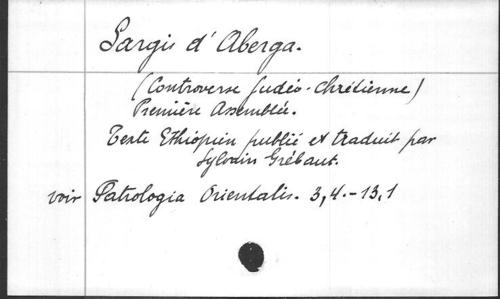 Sargis d'Aberga.
(Controverse Judéo-Chrétienne)
Première Assemblée.
Texte Ethiopien publié et traduit par
Sylvain Grébaut.
voir Patrologia Orientalis. 3,4.-13,1